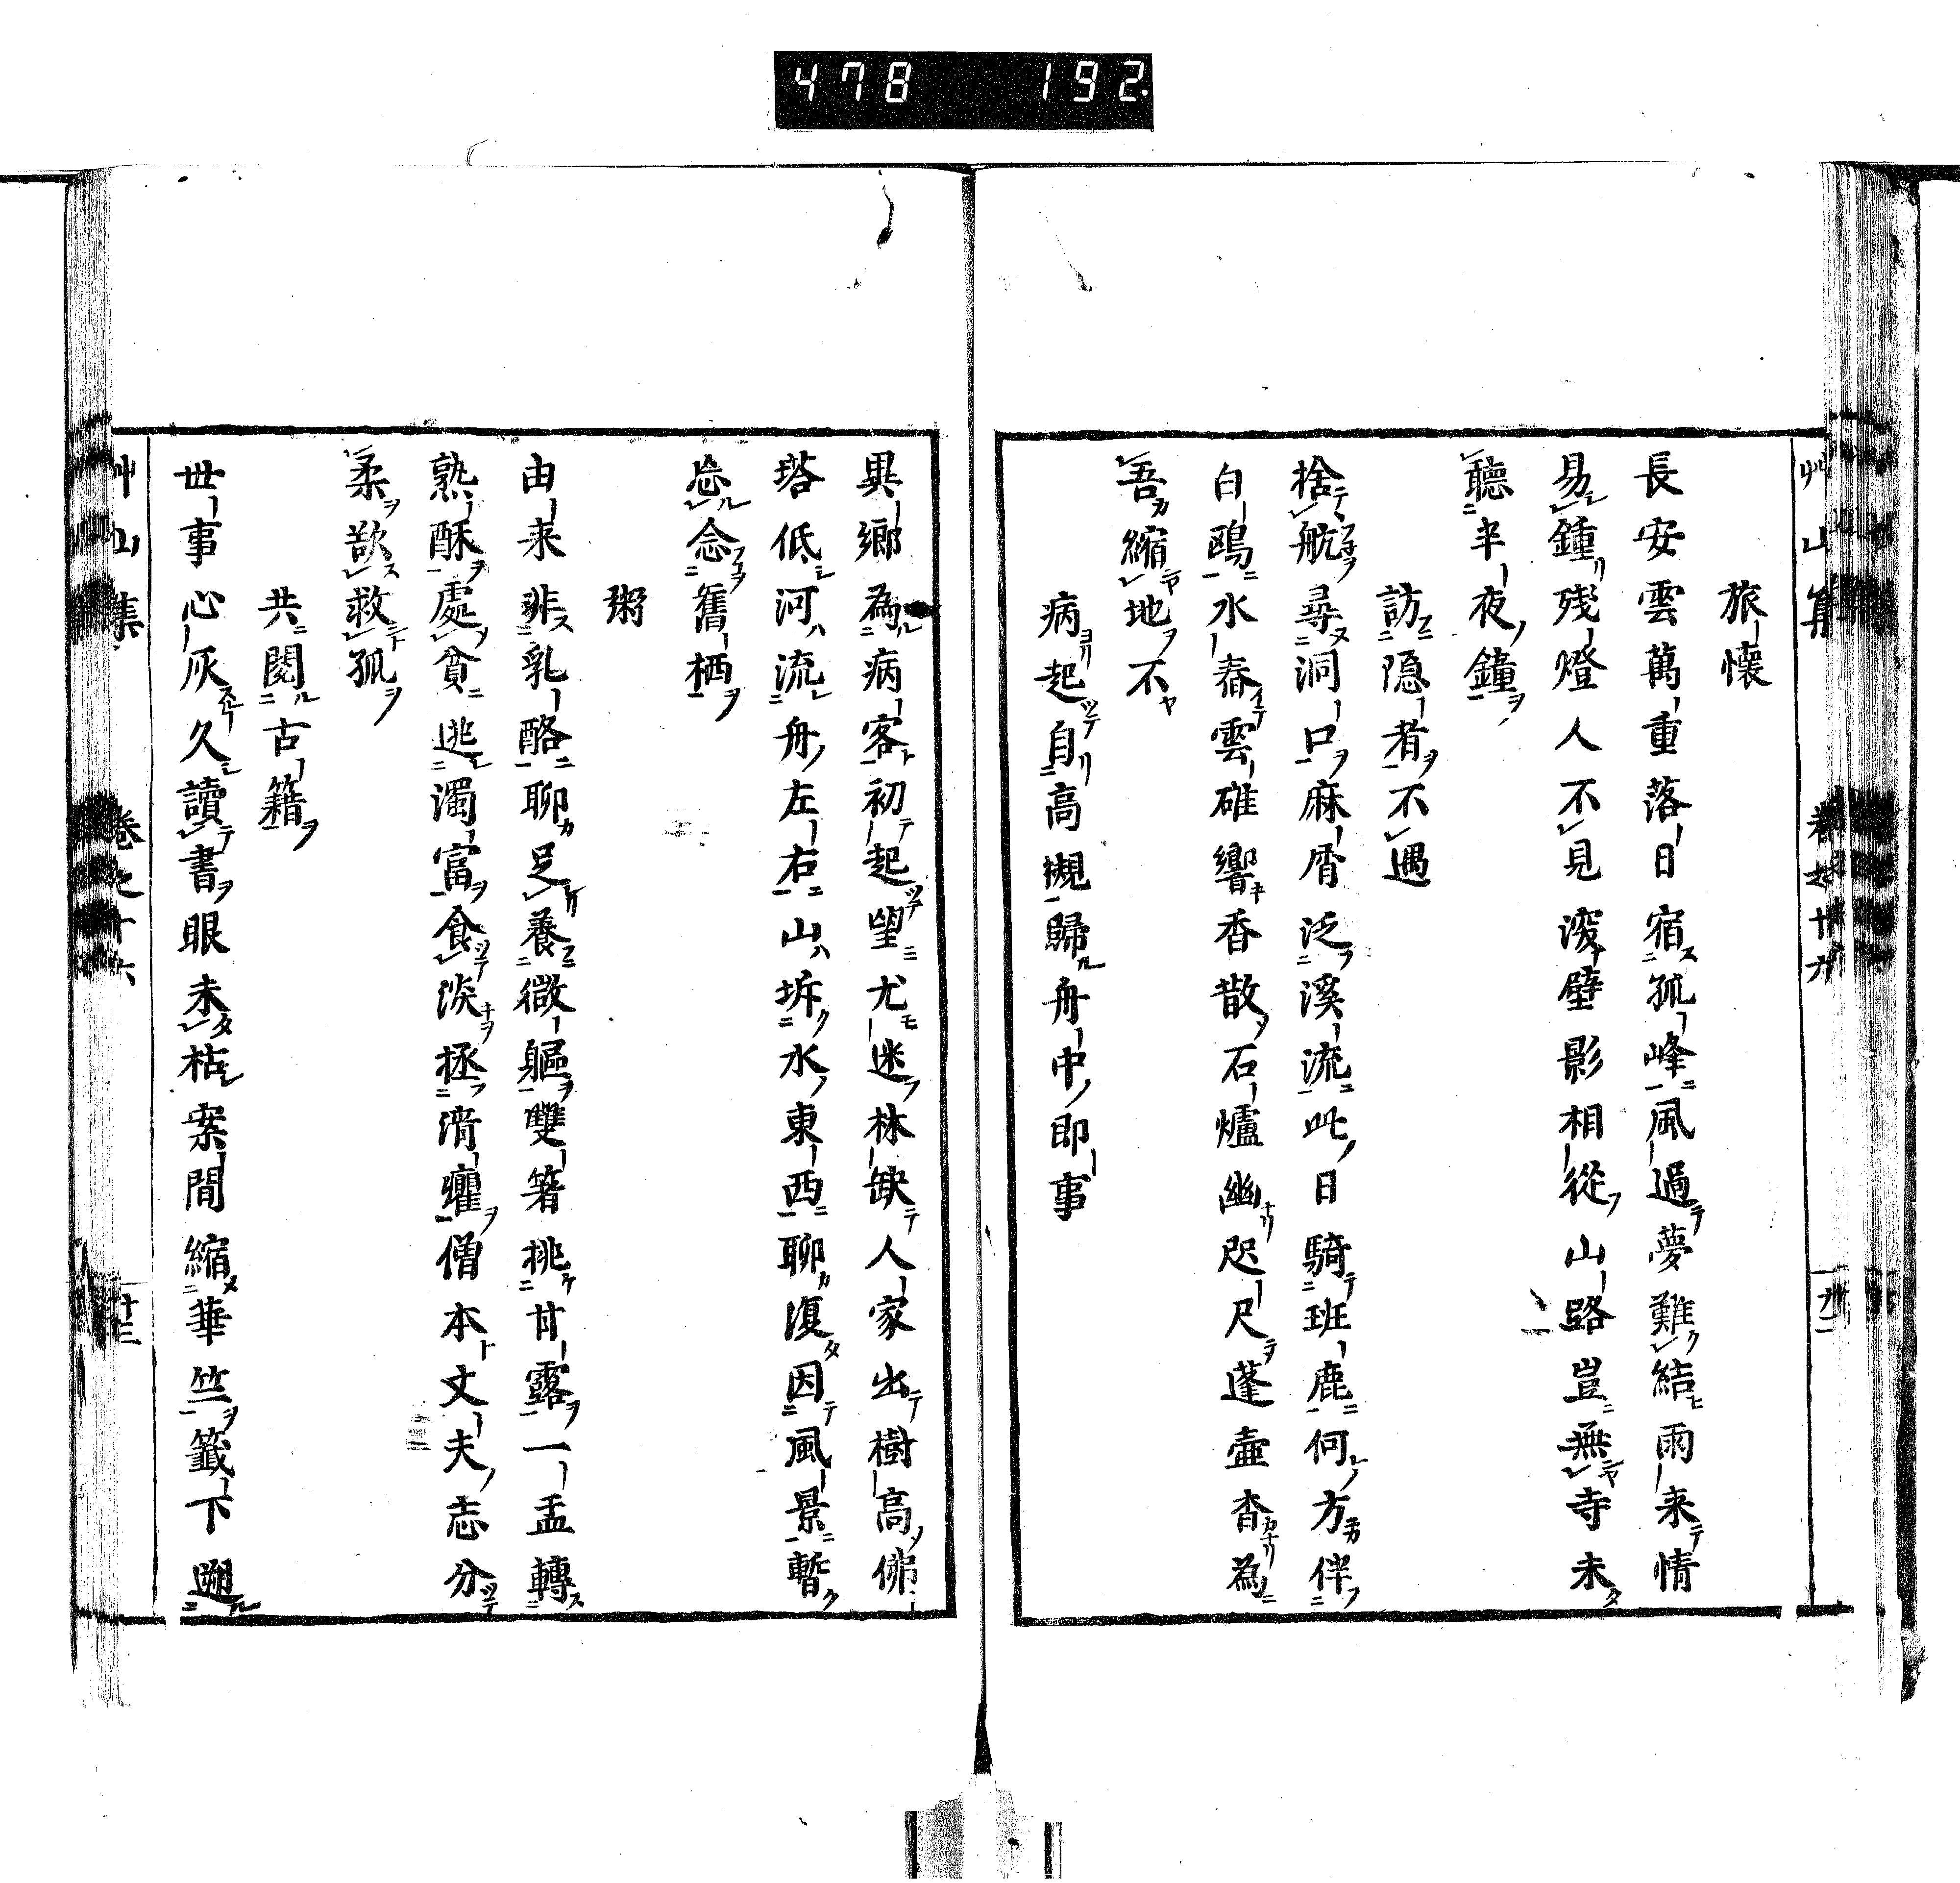 478 192.
艸山集
旅懷
長安雲萬重落日宿孤峰風過夢難結雨来情
易鍾殘燈人不見深壁影相從山路豈無寺未
聽半夜鐘
訪隐者不遇
捨航尋洞口麻屑泛溪流此日騎班鹿何方伴
白鷗水舂雲碓響香散石爐幽咫尺蓬壺杳為
吾縮地不
病起自高槻歸舟中即事
異鄉為病客初起望尤迷林缺人家出樹高佛
塔低河流舟左右山坼水東西聊復因風景暫
忘念舊栖
粥
由来非乳酪聊足養微軀雙箸挑甘露一盂轉
熟酥處貧逃濁富食淡拯清癯僧本丈夫志分
柔欲救孤
共閱古籍
世事心灰久讀書眼未枯案間縮華竺籤下遡
艸山集 卷之十六 廿三